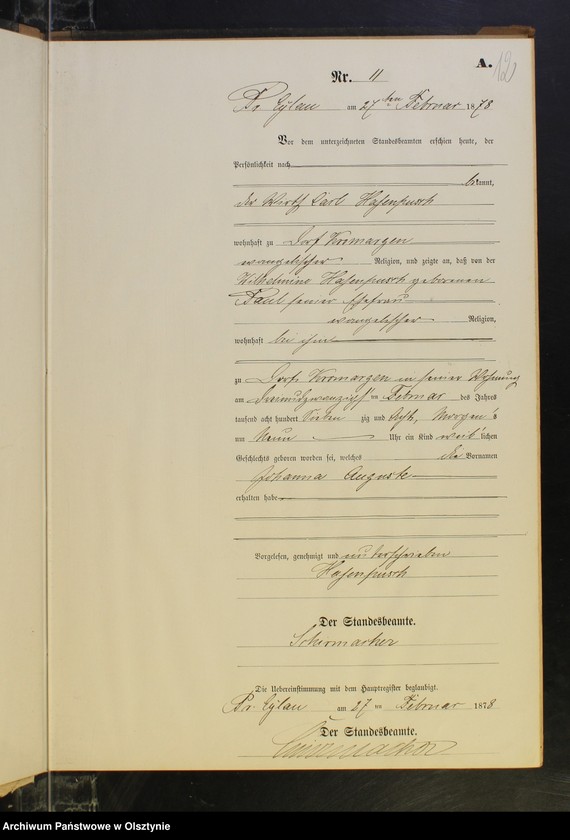 A.
12
Nr. 11
Pr. Eylau am 27ten Februar 1878
Vor dem unterzeichneten Standesbeamten erschien heute, der
Persönlichkeit nach
bekannt,
der Wirth Carl Hasenpusch
wohnhaft zu Dorf
evangelischer Religion, und zeigte an, daß von der
Wilhelmine Hasenpusch geborenen
seiner Ehefrau
evangelischer Religion,
wohnhaft bei ihm
zu Dorf in seiner Wohnung
am ten Februar des Jahres
tausend acht hundert Sieben zig und Acht, Morgens
um Neun Uhr ein Kind weiblichen
Geschlechts geboren worden sei, welches die Vornamen
Johanna Auguste
erhalten habe
Vorgelesen, genehmigt und unterschrieben
Hasenpusch
Der Standesbeamte.
Schirmacher
Die Uebereinstimmung mit dem Hauptregister beglaubigt.
Pr. Eylau am 27 ten Februar 1878
Der Standesbeamte.
Schirmacher
Archiwum Państwowe w Olsztynie